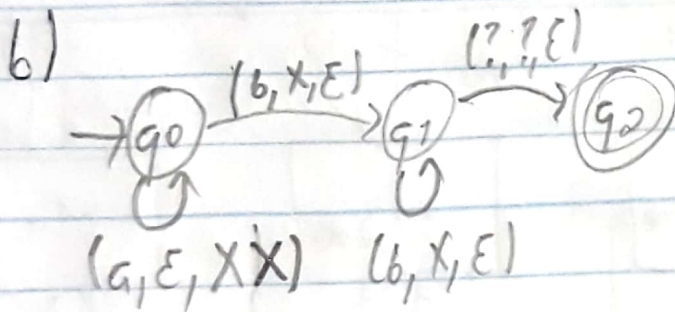 b)
(b,X,ε)
(?,?,ε)
q0
q1
q2
(a,ε,XX)
(b,X,ε)